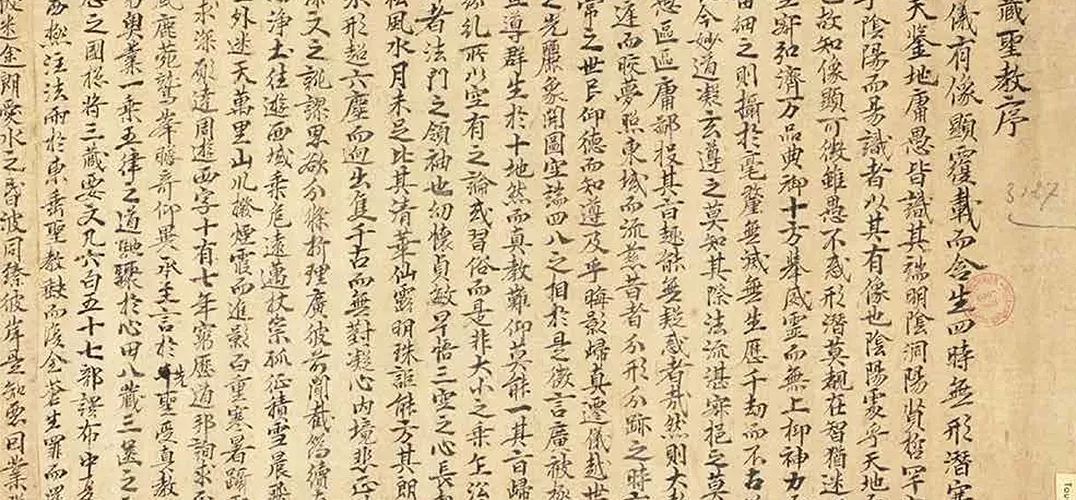 藏聖教序
儀有像顯覆載而含生四時無形潛寒
天鑒地庸愚皆識其端明陰洞陽賢哲罕
乎陰陽而易識者以其有像也陰陽處乎天地
也故知像顯可徵雖愚不惑形潛莫覩在智猶迷
空寂弘濟万品典御十方舉威靈而無上抑神力
細之則攝於毫氂無滅無生歷千劫而不古
今妙道凝玄遵之莫知其際法流湛寂挹之莫
愚區區庸鄙投其旨趣能無疑惑者哉然則大
庭而皎夢照東域而流慈昔者分形分跡之時言
常之世民仰德而知遵及乎晦影歸真遷儀越世
之光麗象開圖空端四八之相於是微言廣被
並導群生於十地然而真教難仰莫能一其旨歸
紛糺所以空有之論或習俗而是非大小之乘乍沿
者法門之領袖也幼懷貞敏早悟三空之心長
松風水月未足比其清華仙露明珠詎能方其朗
形超六塵而迥出隻千古而無對凝心內境悲正
深文之訛謬思欲分條析理廣彼前聞截偽續
淨土往遊西域乘危遠邁杖策孤征積雪晨飛
外迷天萬里山川撥煙霞而進影百重寒暑躡
求深願達周遊西宇十有七年窮歷道邦詢求
鹿菀鷲峯瞻奇仰異承至言於先聖受真教
奧業一乘五律之道馳驟於心田八藏三篋之
之國揔將三藏要文凡六百五十七部譯布中夏
極注法雨於東垂聖教缺而復全蒼生罪而還
迷途朗愛水之昏波同臻彼岸是知惡因業